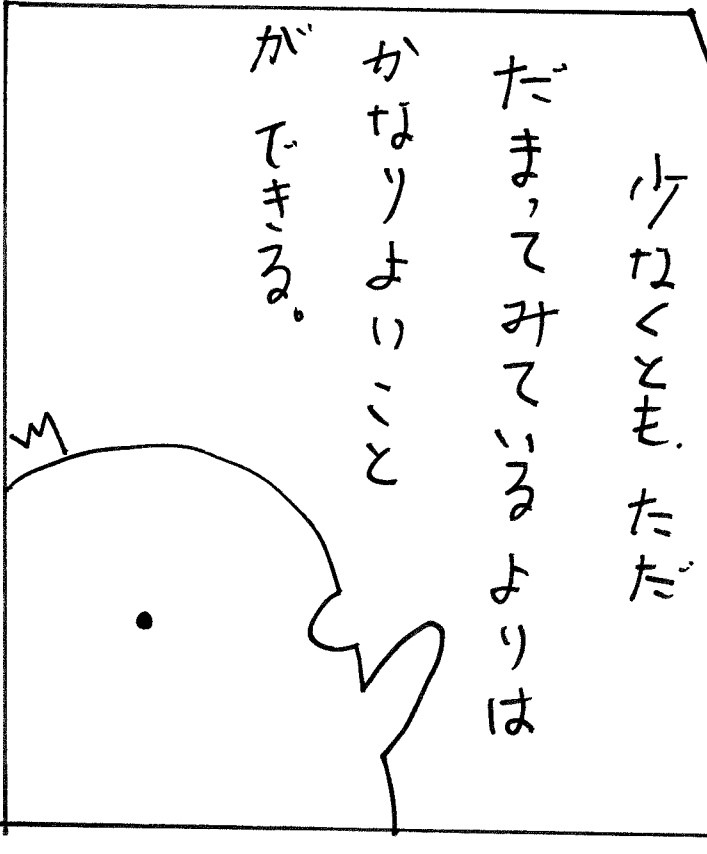 少なくとも、ただ
だまってみているよりは
かなりよいこと
ができる。